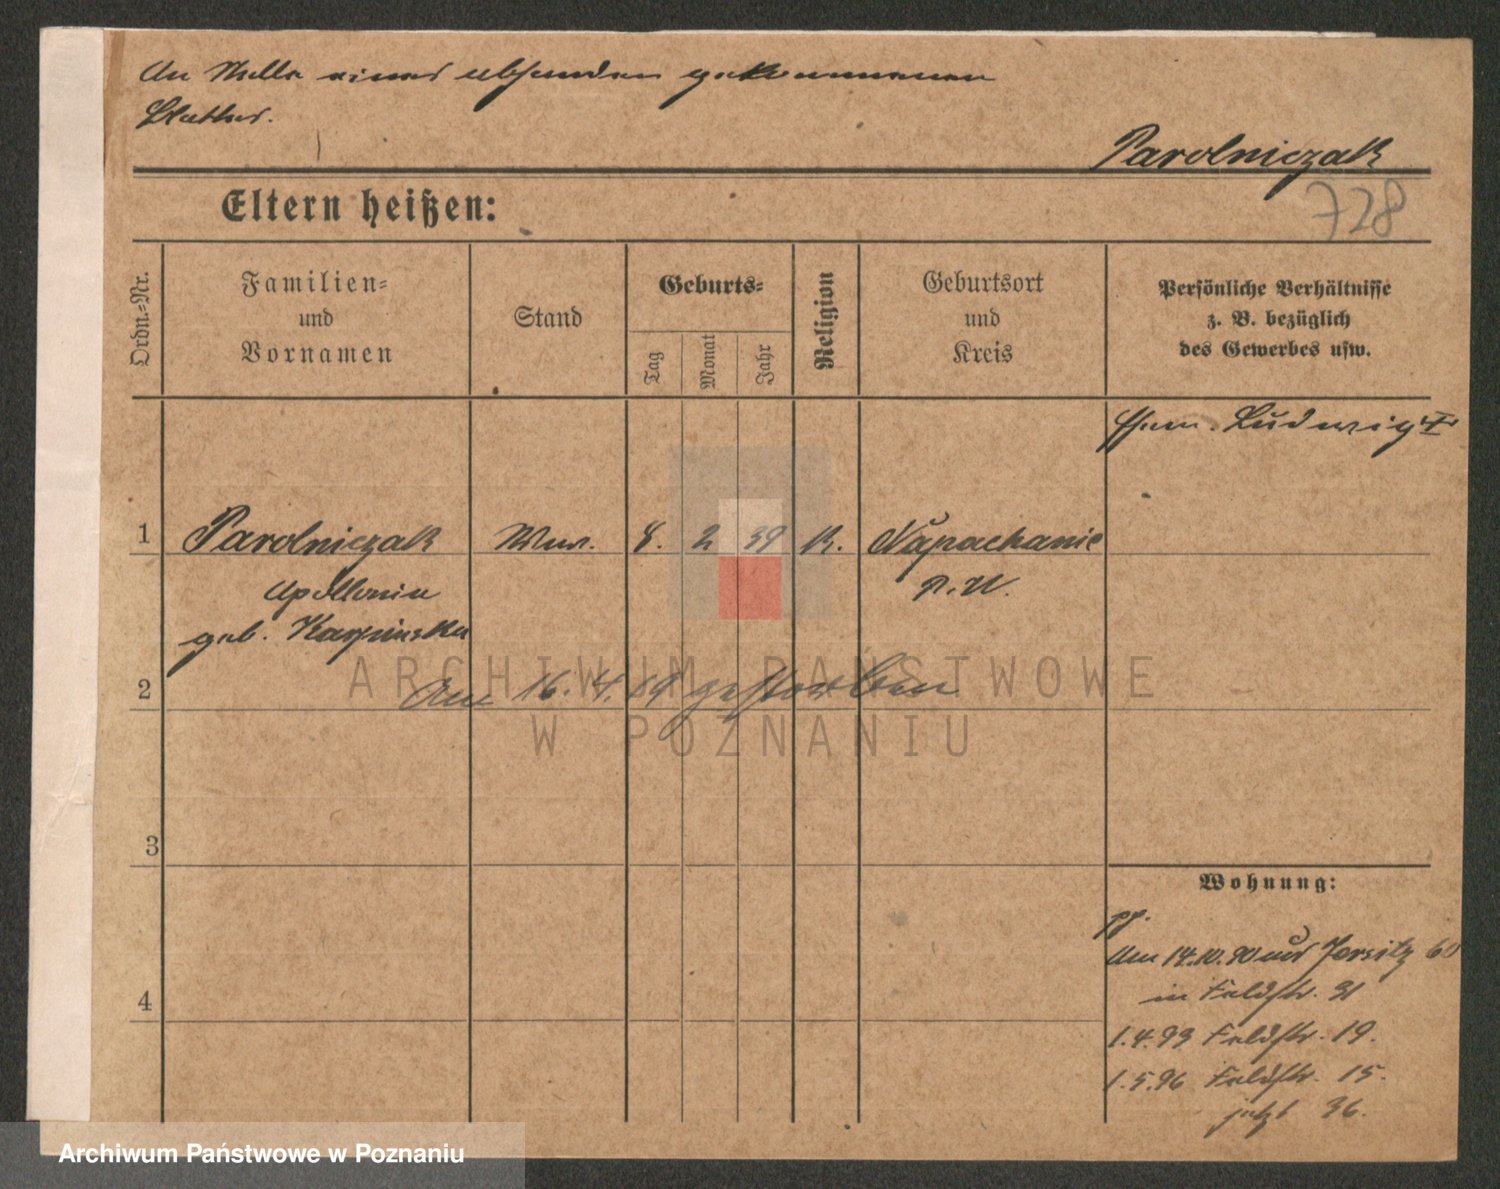 An Stelle eines abhanden gekommenen
Blattes.
Parolniczak
728
Eltern heißen:
Ordn.-Nr.
Familien-
und
Vornamen
Stand
Geburts-
Tag
Monat
Jahr
Religion
Geburtsort
und
Kreis
Persönliche Verhältnisse
z. B. bezüglich
des Gewerbes usw.
Ludwig
1 Parolniczak Ww. 8. 2 39 K. Napachanie
Apollonia P.W.
geb. Karpinska
2 Am 16. 4. 19 gestorben
3
4
Wohnung:
pp.
Am 14.10.90 aus Jersitz 60
in Feldstr. 31
1.4.93 Feldstr. 19.
1.5.96 Feldstr. 15.
jetzt 36.
ARCHIWUM PAŃSTWOWE
W POZNANIU
Archiwum Państwowe w Poznaniu